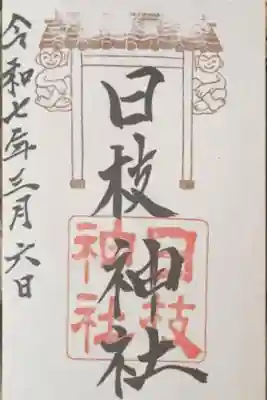 日枝神社
令和七年三月六日
日枝
神社